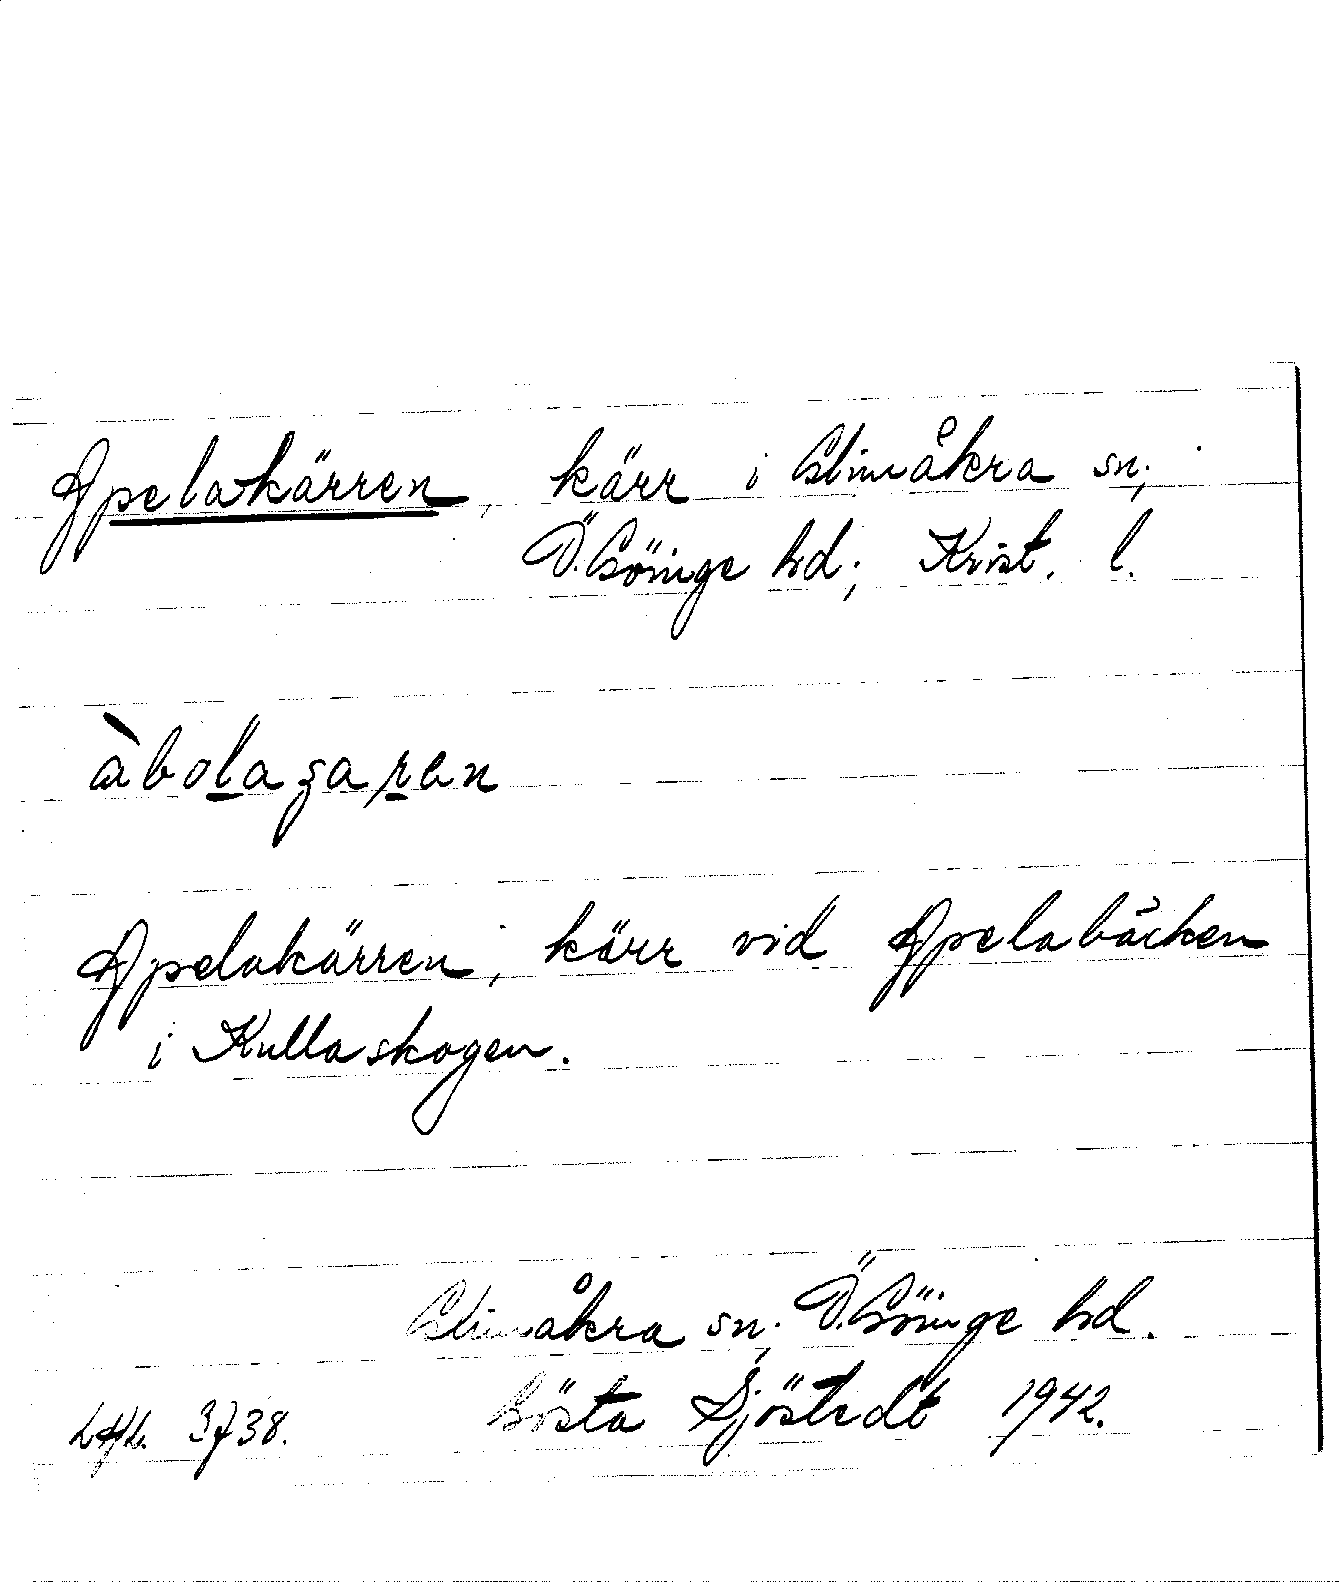 Apelakärren, kärr i Glimåkra sn;
Ö. Göinge hd; Krist. l.
àbolaʒaren
Apelakärren, kärr vid Apelabäcken
i Kullaskogen.
Glimåkra sn; Ö. Göinge hd.
Gösta Sjöstedt 1942.
3738.